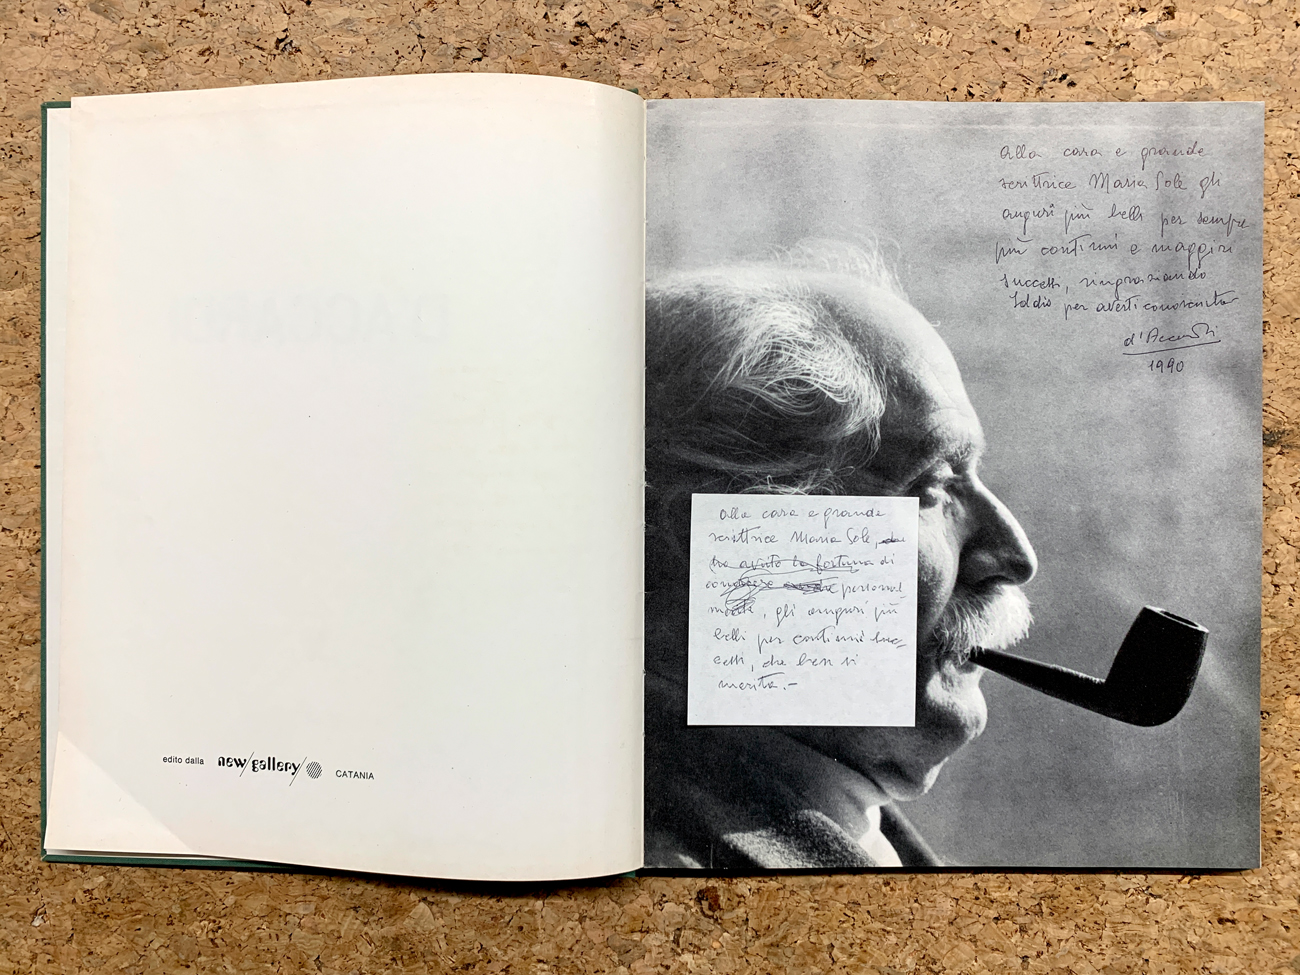 edito dalla new/gallery/ CATANIA
alla cara e grande
scrittrice Maria Sole gli
auguri più belli per sempre
più continui e maggiori
successi, ringraziando
Iddio per averti conosciuta
1990
alla cara e grande
scrittrice Maria Sole, che
ho avuto la fortuna di
conoscere anche personal-
mente, gli auguri più
belli per continui suc-
cessi, che ben si
merita.-